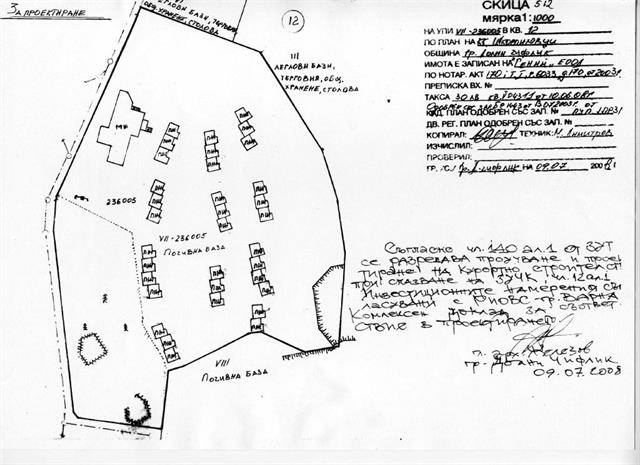 За проектиране
Леглови бази, търговия,
общ. хранене, столова
12
III
Леглови бази,
търговия, общ.
хранене, столова
МЖ
236005
VII-236005
Почивна база
VIII
Почивна база
СКИЦА 512
мярка 1: 1000
НА УПИ VII-236005 В КВ. 12
ПО ПЛАН НА
ОБЩИНА гр. Долни чифлик
ИМОТА Е ЗАПИСАН НА "Гений" ЕООД
ПО НОТАР. АКТ 170, т. I, р. 6033, д. 170 от 2003г.
ПРЕПИСКА ВХ. №
ТАКСА 30 лв. кв.
КАД. ПЛАН ОДОБРЕН СЪС ЗАП. №
ДВ. РЕГ. ПЛАН ОДОБРЕН СЪС ЗАП.
КОПИРАЛ: ТЕХНИК: М. Димитров
ИЗЧИСЛИЛ:
ПРОВЕРИЛ:
ГР./С./ гр. Д. чифлик НА 09.07 2008 г.
Съгласно чл. 140 ал. 1 от ЗУТ
се разрешава проучване и проек-
тиране на курортно строителст
при спазване на ЗУЧК, чл. 12 ал. 1
Инвестиционните намерения съ
гласувани с РИОВС - гр. Варна
Комплексен доклад за съответ
ствие в проектирането.
гл. арх. Железов
гр. Долни Чифлик
09.07.2008